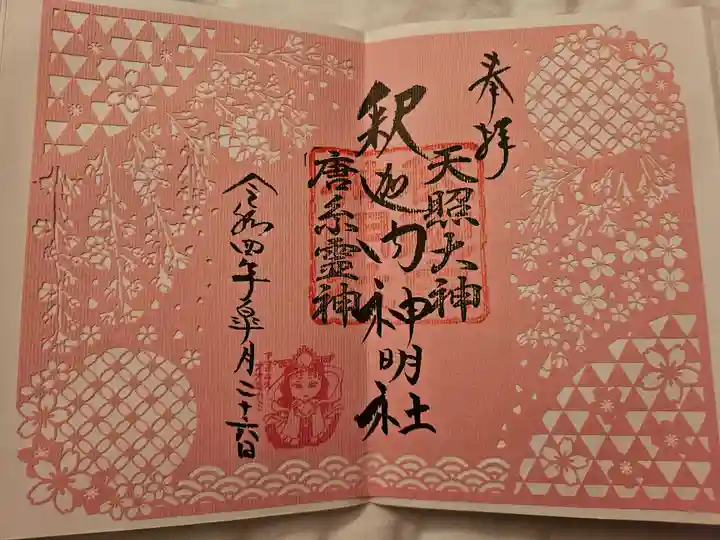 奉拝
天照大神
釈迦内神明社
唐糸靈神
令和四年皐月二十六日